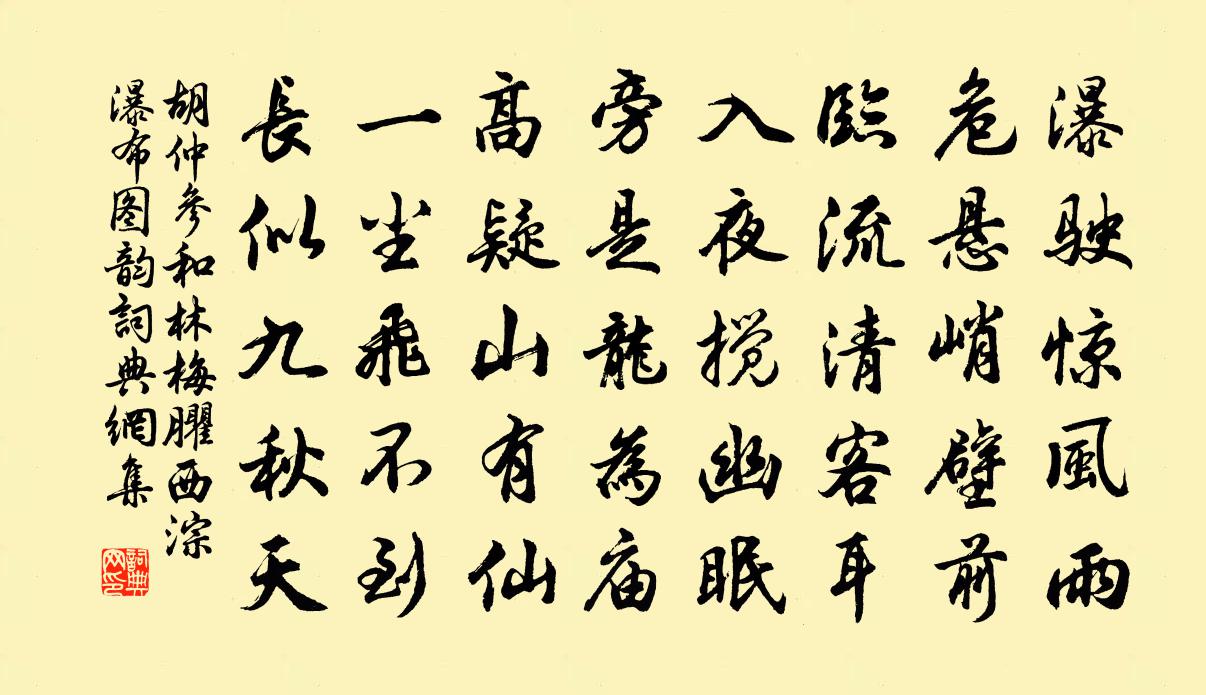 瀑駛惊風雨
危悬峭壁前
臨流清客耳
入夜搅幽眠
旁是龍為庙
高疑山有仙
一尘飛不到
長似九秋天
胡仲參和林梅臞西淙
瀑布图韵詞典網集
詞典
网印